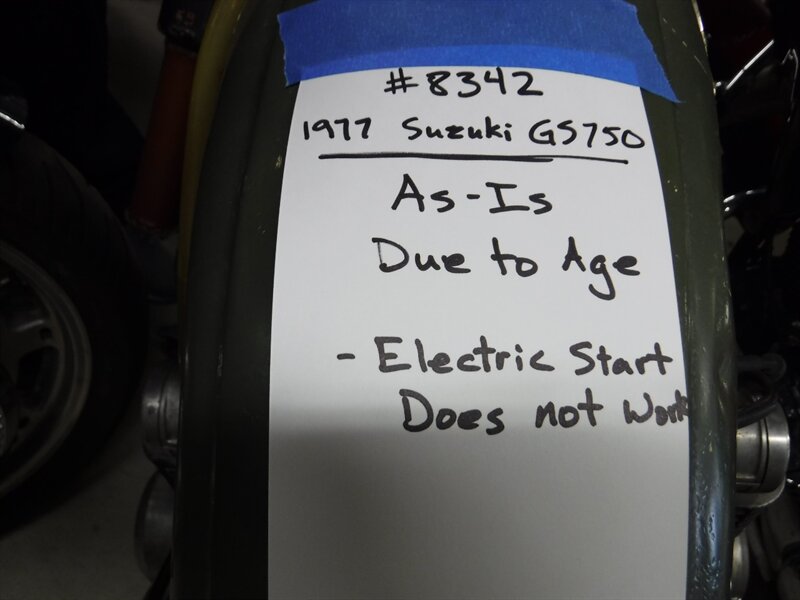 #8342
1977 Suzuki GS750
As-Is
Due to Age
- Electric Start
Does not Work